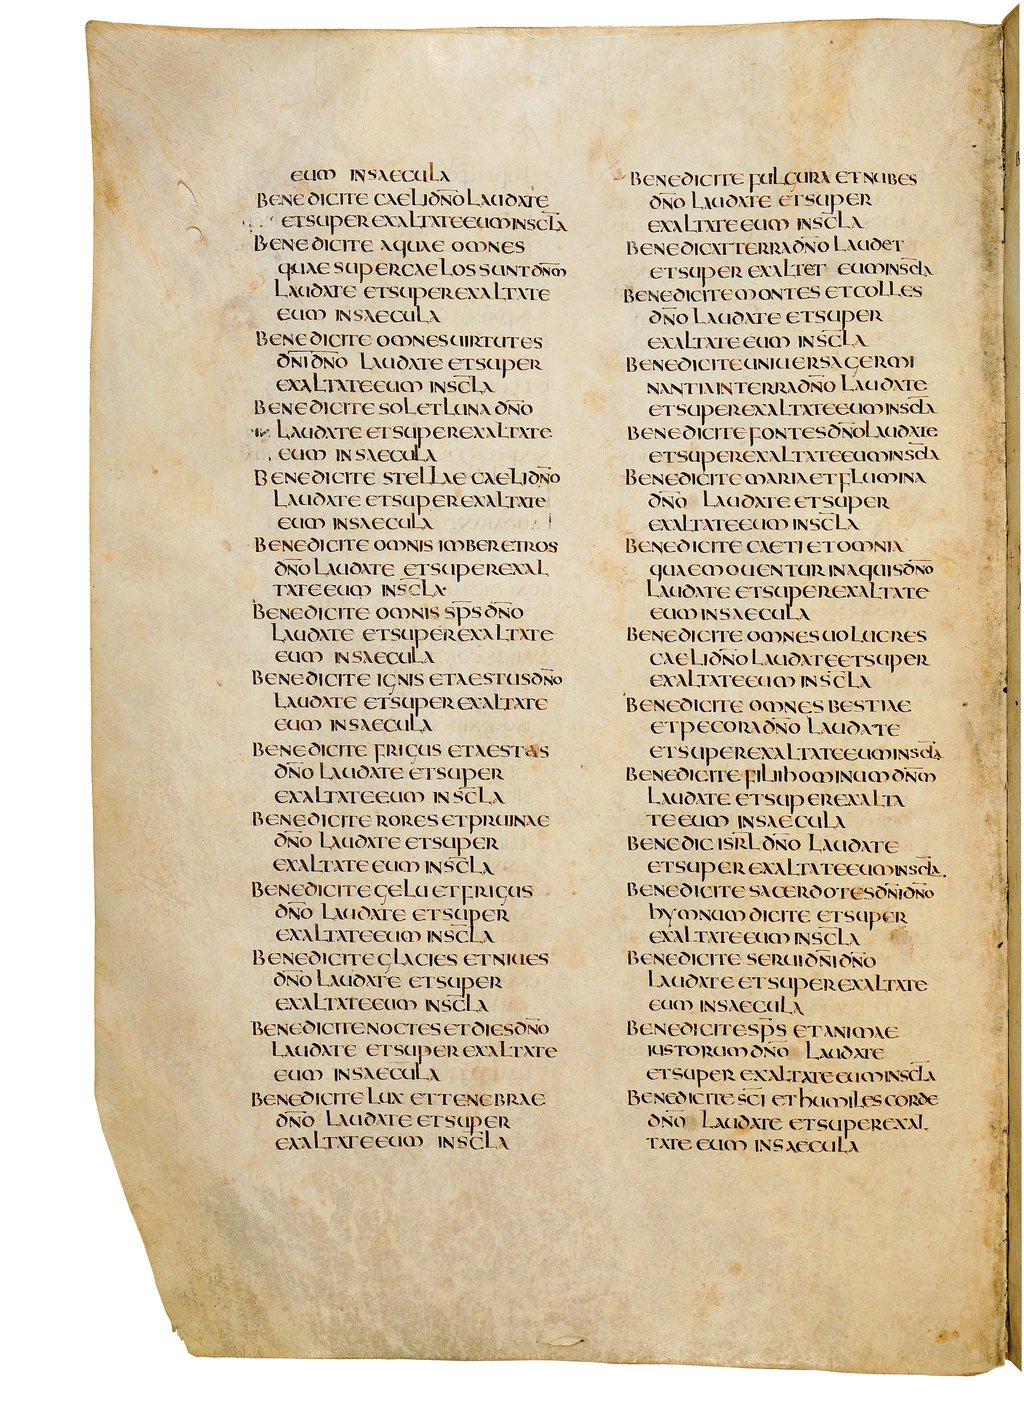 EUM IN SAECULA
BENEDICITE CAELI DN̄O LAUDATE
ET SUPER EXALTATE EUM IN SC̄LA
BENEDICITE AQUAE OMNES
QUAE SUPER CAELOS SUNT DN̄M
LAUDATE ET SUPER EXALTATE
EUM IN SAECULA
BENEDICITE OMNES UIRTUTES
DN̄I DN̄O LAUDATE ET SUPER
EXALTATE EUM IN SC̄LA
BENEDICITE SOL ET LUNA DN̄O
LAUDATE ET SUPER EXALTATE
EUM IN SAECULA
BENEDICITE STELLAE CAELI DN̄O
LAUDATE ET SUPER EXALTATE
EUM IN SAECULA
BENEDICITE OMNIS IMBER ET ROS
DN̄O LAUDATE ET SUPER EXAL
TATE EUM IN SC̄LA
BENEDICITE OMNIS SP̄S DN̄O
LAUDATE ET SUPER EXALTATE
EUM IN SAECULA
BENEDICITE IGNIS ET AESTUS DN̄O
LAUDATE ET SUPER EXALTATE
EUM IN SAECULA
BENEDICITE FRIGUS ET AESTAS
DN̄O LAUDATE ET SUPER
EXALTATE EUM IN SC̄LA
BENEDICITE RORES ET PRUINAE
DN̄O LAUDATE ET SUPER
EXALTATE EUM IN SC̄LA
BENEDICITE GELU ET FRIGUS
DN̄O LAUDATE ET SUPER
EXALTATE EUM IN SC̄LA
BENEDICITE GLACIES ET NIUES
DN̄O LAUDATE ET SUPER
EXALTATE EUM IN SC̄LA
BENEDICITE NOCTES ET DIES DN̄O
LAUDATE ET SUPER EXALTATE
EUM IN SAECULA
BENEDICITE LUX ET TENEBRAE
DN̄O LAUDATE ET SUPER
EXALTATE EUM IN SC̄LA
BENEDICITE FULGURA ET NUBES
DN̄O LAUDATE ET SUPER
EXALTATE EUM IN SC̄LA
BENEDICAT TERRA DN̄O LAUDET
ET SUPER EXALTET EUM IN SC̄LA
BENEDICITE MONTES ET COLLES
DN̄O LAUDATE ET SUPER
EXALTATE EUM IN SC̄LA
BENEDICITE UNIUERSA GERMI
NANTIA IN TERRA DN̄O LAUDATE
ET SUPER EXALTATE EUM IN SC̄LA
BENEDICITE FONTES DN̄O LAUDATE
ET SUPER EXALTATE EUM IN SC̄LA
BENEDICITE MARIA ET FLUMINA
DN̄O LAUDATE ET SUPER
EXALTATE EUM IN SC̄LA
BENEDICITE CAETI ET OMNIA
QUAE MOUENTUR IN AQUIS DN̄O
LAUDATE ET SUPER EXALTATE
EUM IN SAECULA
BENEDICITE OMNES UOLUCRES
CAELI DN̄O LAUDATE ET SUPER
EXALTATE EUM IN SC̄LA
BENEDICITE OMNES BESTIAE
ET PECORA DN̄O LAUDATE
ET SUPER EXALTATE EUM IN SC̄LA
BENEDICITE FILII HOMINUM DN̄M
LAUDATE ET SUPER EXALTA
TE EUM IN SAECULA
BENEDIC ISR̄L DN̄O LAUDATE
ET SUPER EXALTATE EUM IN SC̄LA.
BENEDICITE SACERDOTES DN̄I DN̄O
HYMNUM DICITE ET SUPER
EXALTATE EUM IN SC̄LA
BENEDICITE SERUI DN̄I DN̄O
LAUDATE ET SUPER EXALTATE
EUM IN SAECULA
BENEDICITE SP̄S ET ANIMAE
IUSTORUM DN̄O LAUDATE
ET SUPER EXALTATE EUM IN SC̄LA
BENEDICITE SC̄I ET HUMILES CORDE
DN̄O LAUDATE ET SUPER EXAL
TATE EUM IN SAECULA